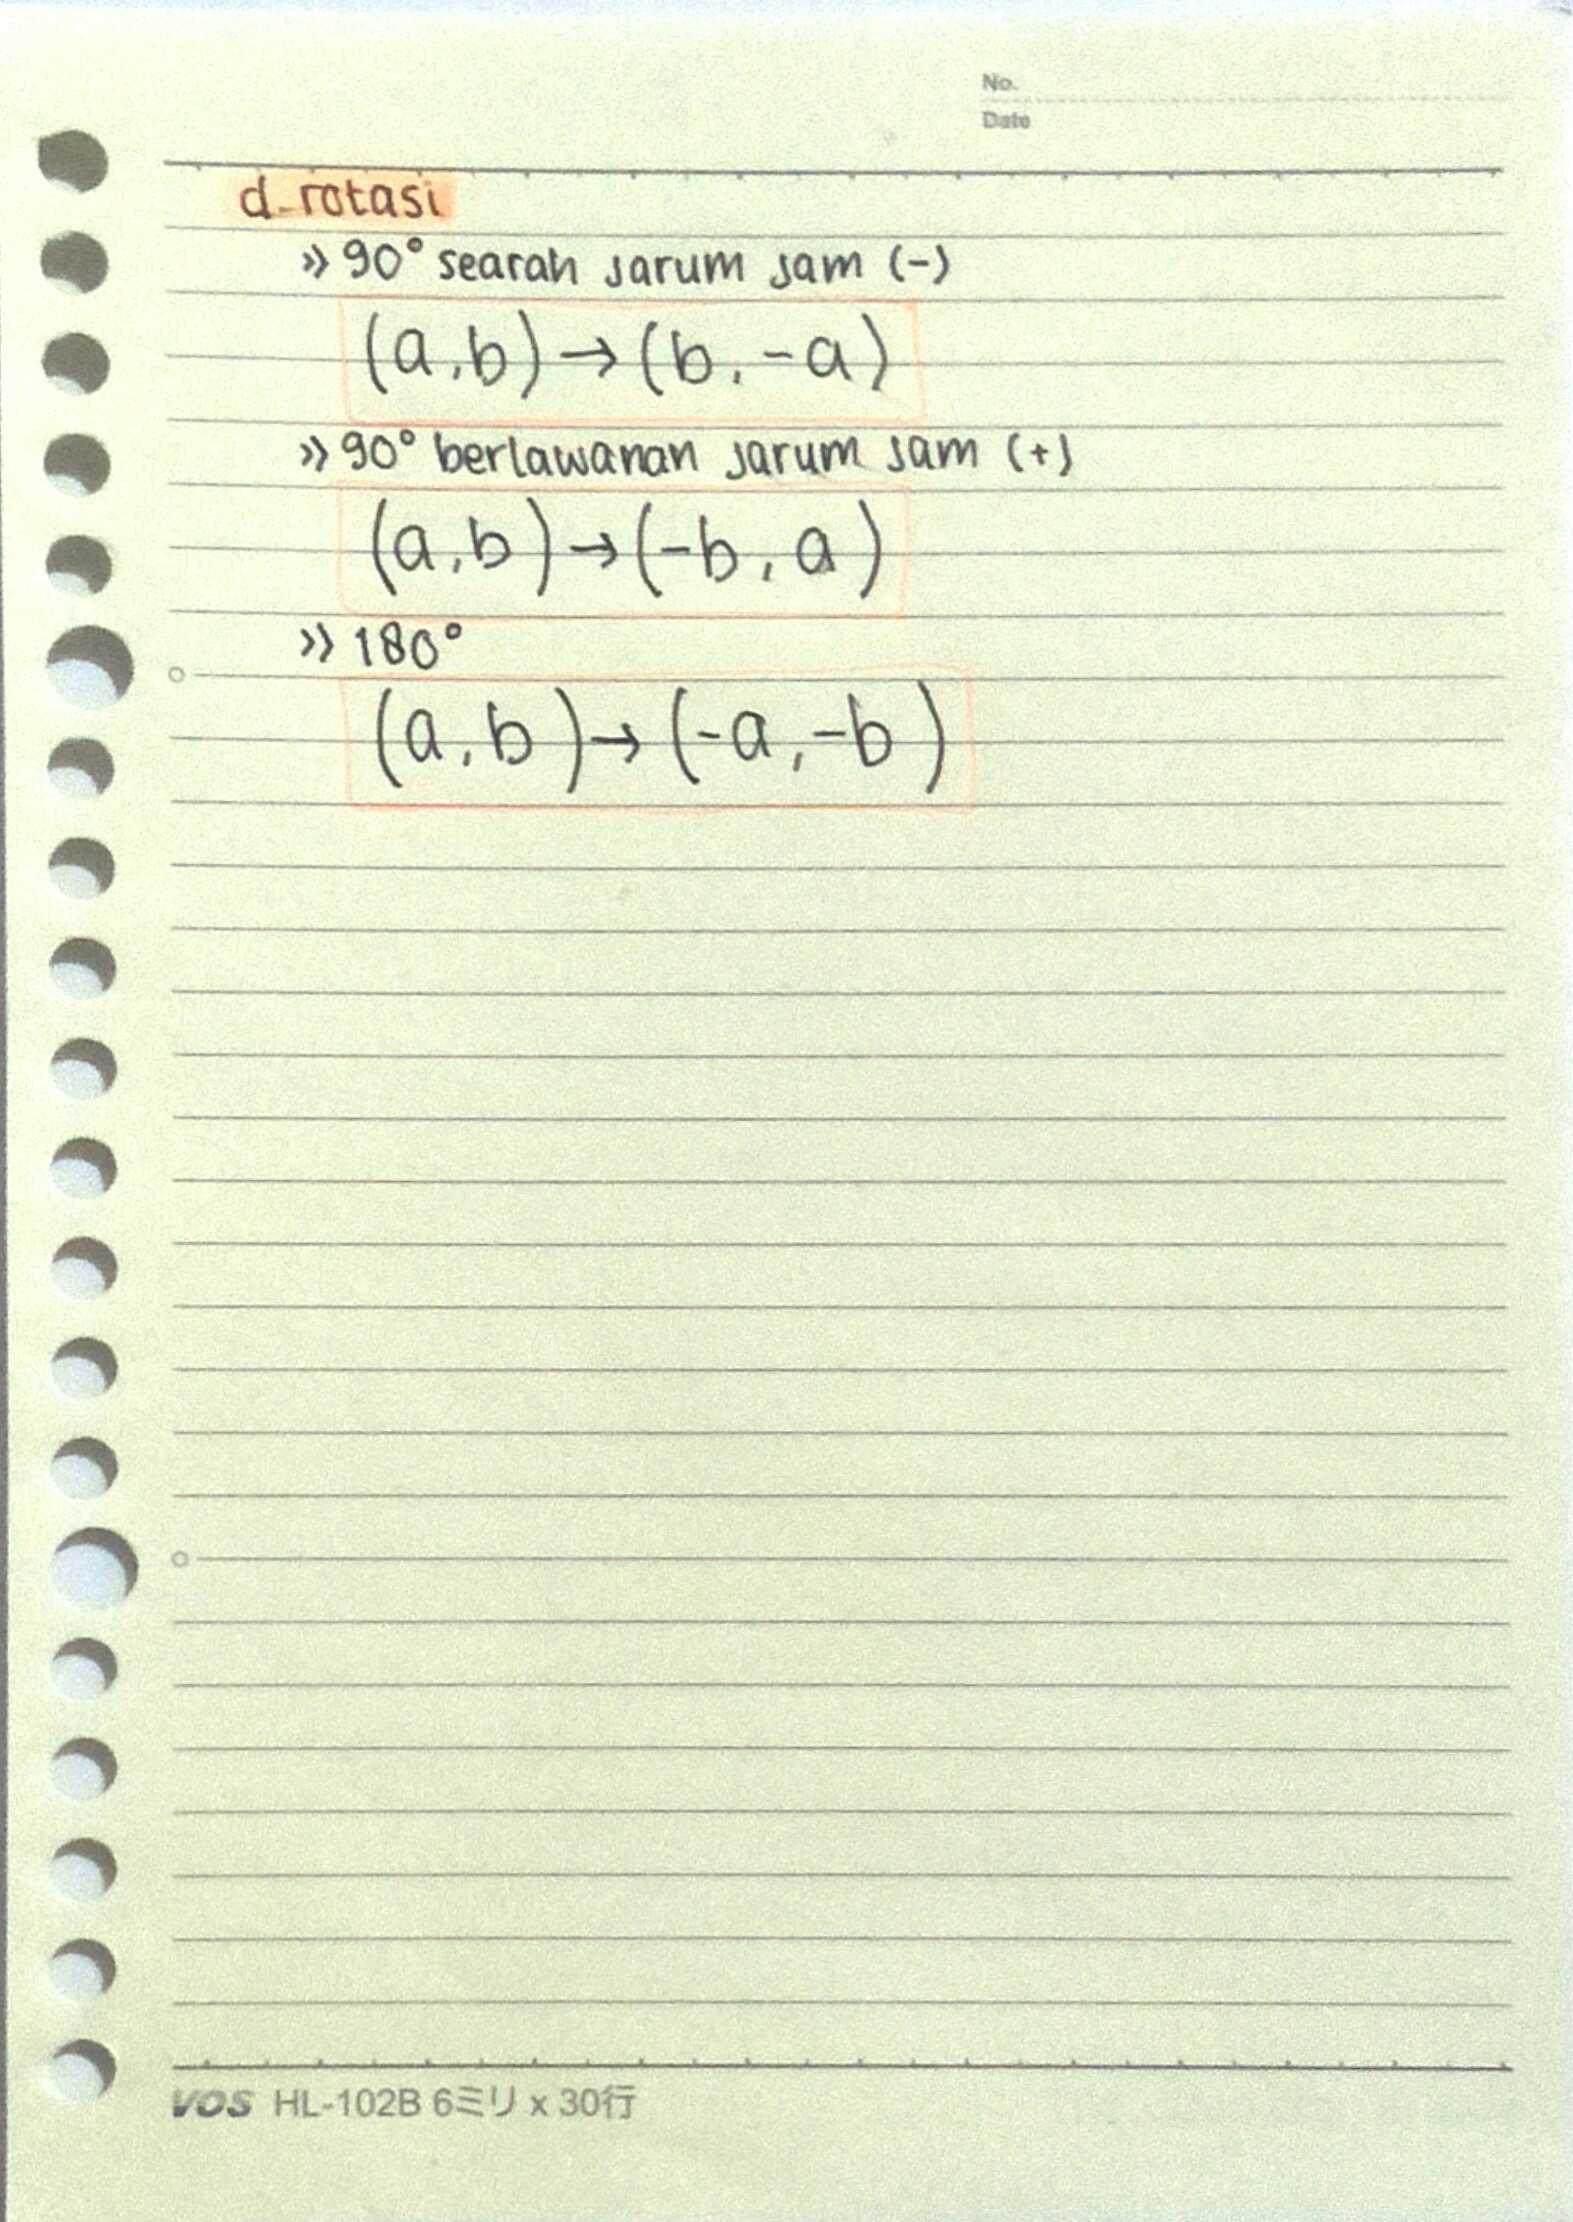 No.
Date
d. rotasi
» 90° searah jarum jam (-)
(a,b) → (b, -a)
» 90° berlawanan jarum jam (+)
(a,b) → (-b, a)
» 180°
(a,b) → (-a, -b)
VOS HL-102B 6ミリ x 30行